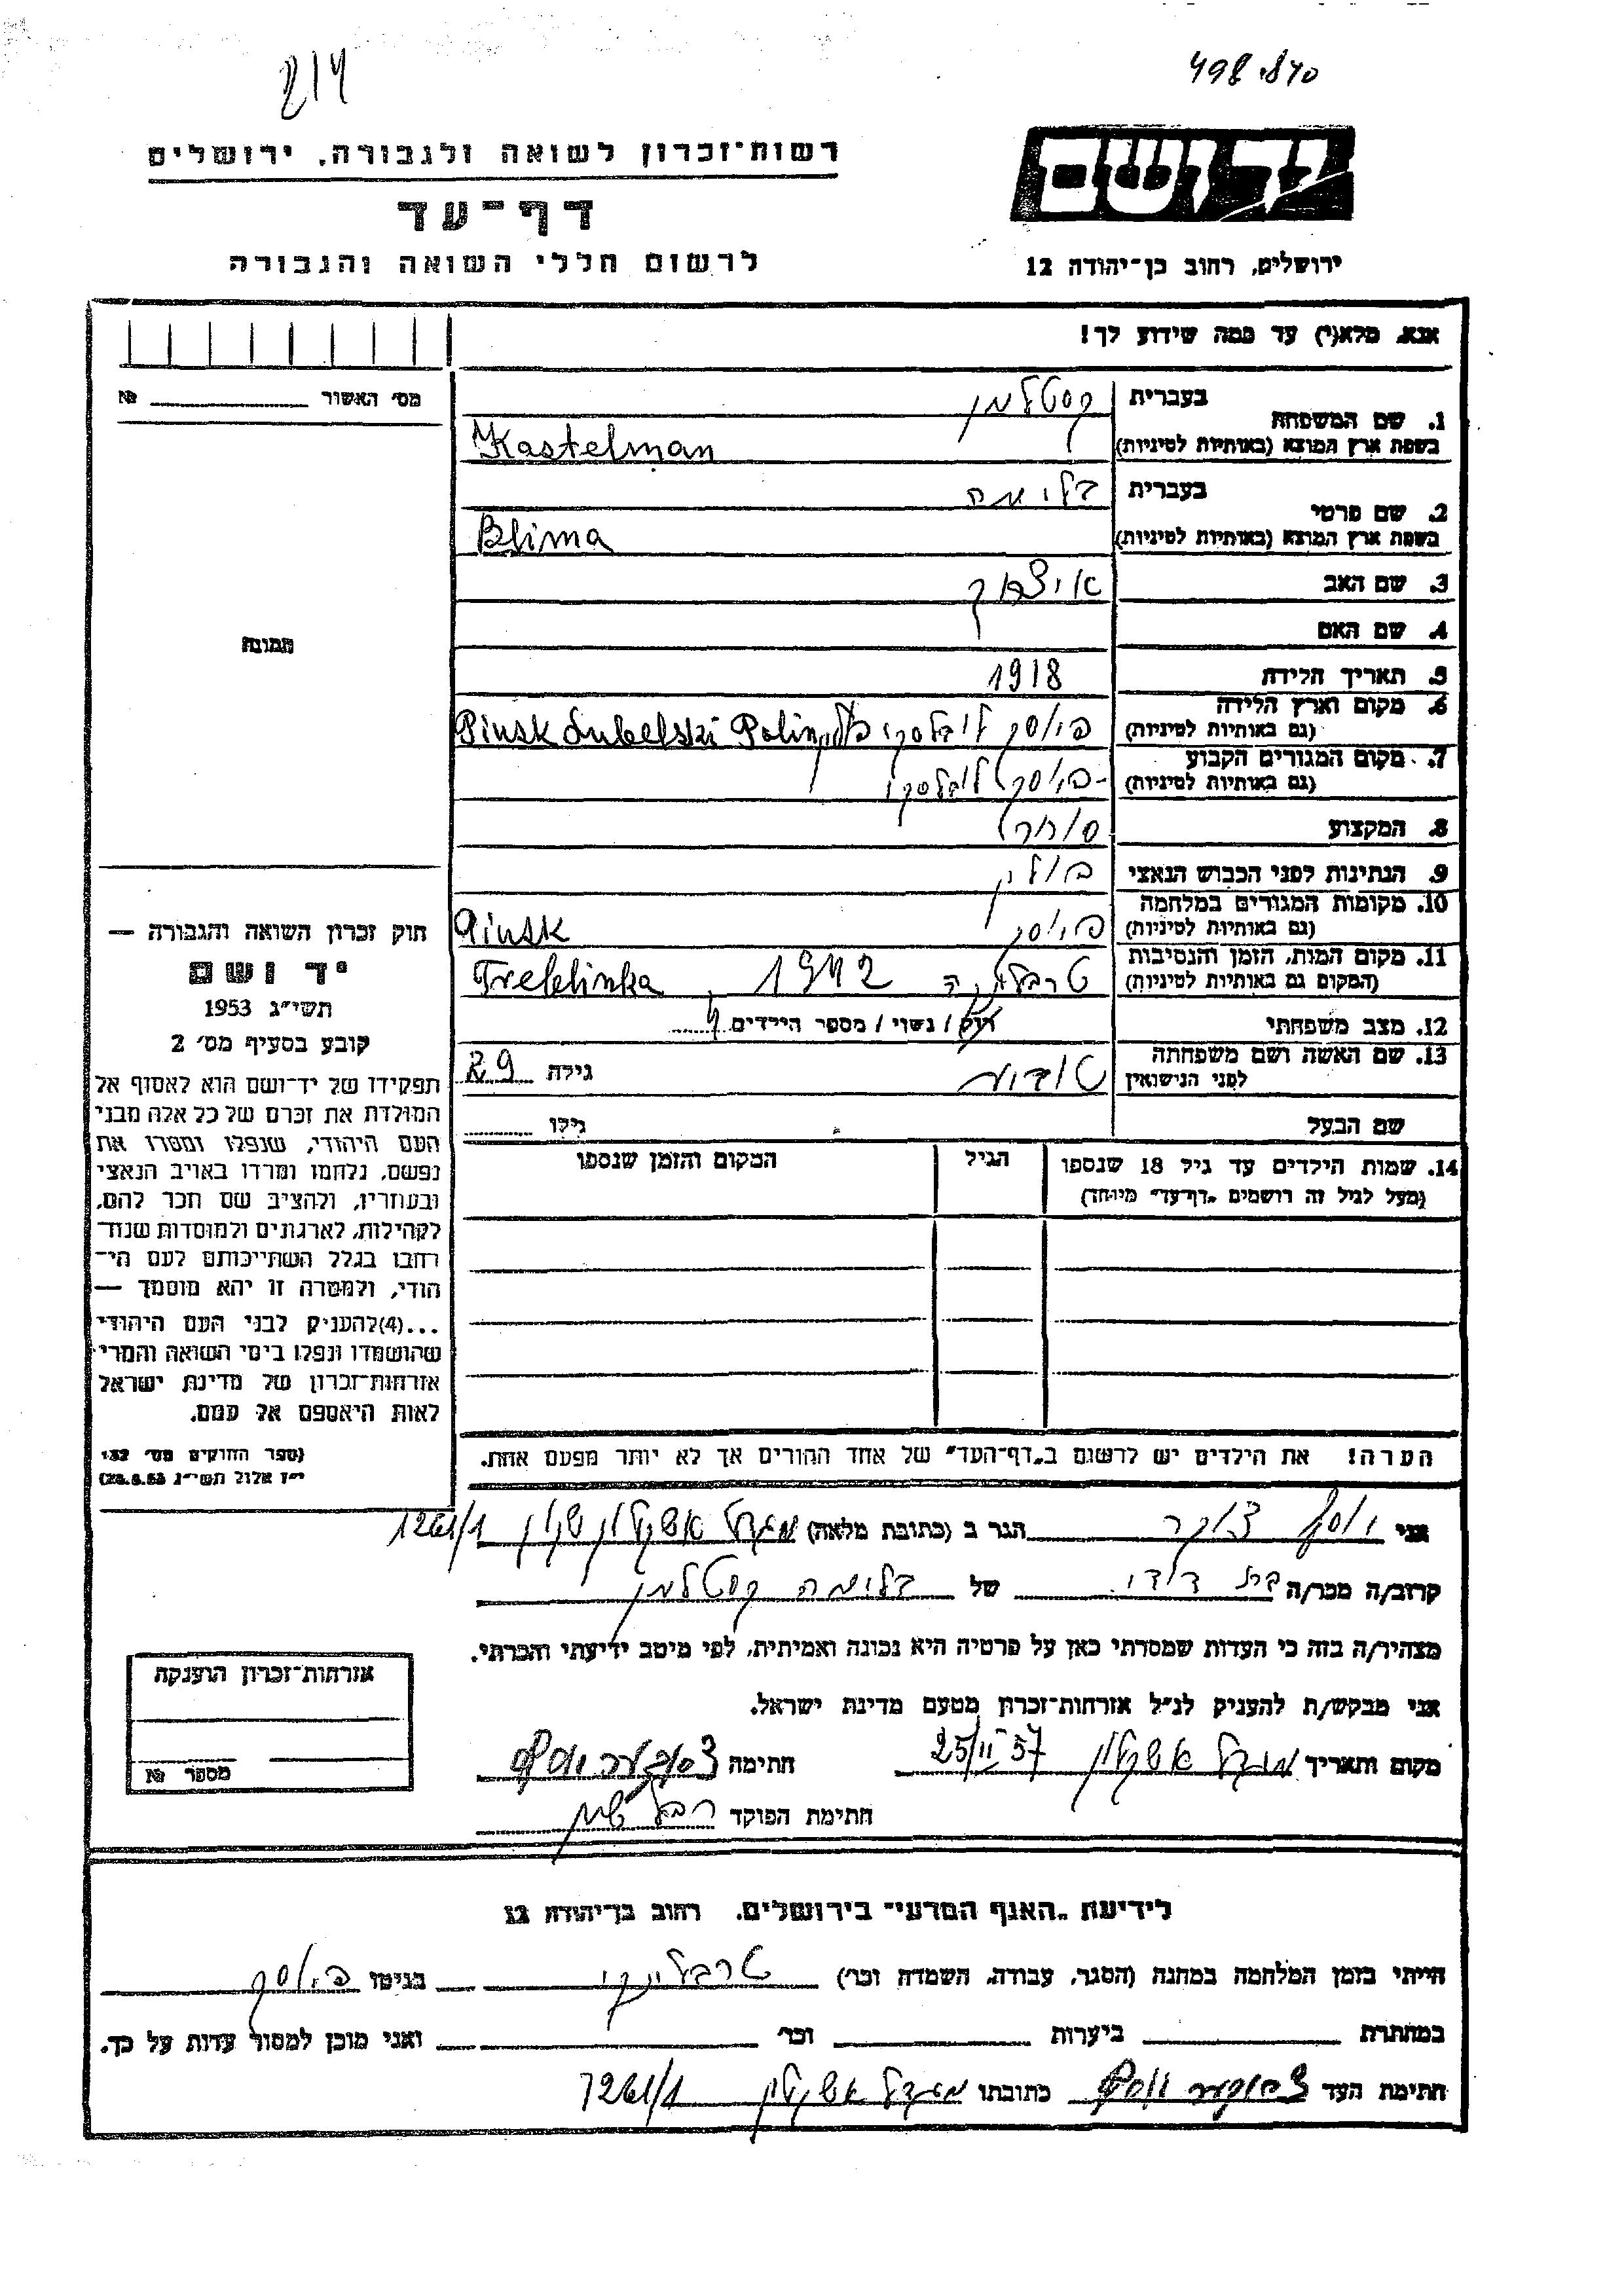 214
498.870
רשות־זכרון לשואה ולגבורה, ירושלים
יד ושם
דף־עד
לרשום חללי השואה והגבורה
ירושלים, רחוב בן־יהודה 12
אנא, מלא(י) עד כמה שידוע לך!
מס׳ האשור № 
1. שם המשפחה
בעברית קסטלמן
בשפת ארץ המוצא (באותיות לטיניות) Kastelman
2. שם פרטי
בעברית בלומה
בשפת ארץ המוצא (באותיות לטיניות) Blima
3. שם האב איצחק
4. שם האם
תמונה
5. תאריך הלידה 1918
6. מקום וארץ הלידה
(גם באותיות לטיניות) פינסק לובלסקי פולין Pinsk Lubelski Polin
7. מקום המגורים הקבוע
(גם באותיות לטיניות) פינסק לובלסקי
8. המקצוע סוחר
9. הנתינות לפני הכבוש הנאצי פולין
10. מקומות המגורים במלחמה
(גם באותיות לטיניות) פינסק Pinsk
11. מקום המות, הזמן והנסיבות
(המקום גם באותיות לטיניות) טרבלינקה 1942, Treblinka
12. מצב משפחתי רווק / נשוי / מספר הילדים
13. שם האשה ושם משפחתה
לפני הנישואין גילה 29
שם הבעל גילו
14. שמות הילדים עד גיל 18 שנספו
(מעל לגיל זה רושמים „דף־עד״ מיוחד)
הגיל
המקום והזמן שנספו
הערה! את הילדים יש לרשום ב„דף־העד״ של אחד ההורים אך לא יותר מפעם אחת.
חוק זכרון השואה והגבורה —
יד ושם
תשי״ג 1953
קובע בסעיף מס׳ 2
תפקידו של יד־ושם הוא לאסוף אל
המולדת את זכרם של כל אלה מבני
העם היהודי, שנפלו ומסרו את
נפשם, נלחמו ומרדו באויב הנאצי
ובעוזריו, ולהציב שם וזכר להם,
לקהילות, לארגונים ולמוסדות שנח־
רבו בגלל השתייכותם לעם הי־
הודי, ולמטרה זו יהא מוסמך —
...(4) להעניק לבני העם היהודי
שהושמדו ונפלו בימי השואה והמרי
אזרחות־זכרון של מדינת ישראל
לאות היאספם אל עמם.
(ספר החוקים מס׳ 132
י״ז אלול תשי״ג 28.8.53)
אני יוסף צוקר הגר ב (כתובת מלאה) מגדל אשקלון 1261/1
קרוב/ה מכר/ה בת דודי של בלומה קסטלמן
מצהיר/ה בזה כי העדות שמסרתי כאן על פרטיה היא נכונה ואמיתית, לפי מיטב ידיעתי והכרתי.
אני מבקש/ת להעניק לנ״ל אזרחות־זכרון מטעם מדינת ישראל.
מקום ותאריך מגדל אשקלון 25/II 57 חתימה צוקער יוסף
חתימת הפוקד
אזרחות־זכרון הוענקה
מספר №
לידיעת „האגף המדעי״ בירושלים, רחוב בן־יהודה 12
הייתי בזמן המלחמה במחנה (הסגר, עבודה, השמדה וכו׳) טרבלינקי בגיטו פינסק
במחתרת ביערות וכו׳ ואני מוכן למסור עדות על כך.
חתימת העד צוקער יוסף כתובתו מגדל אשקלון 1261/1